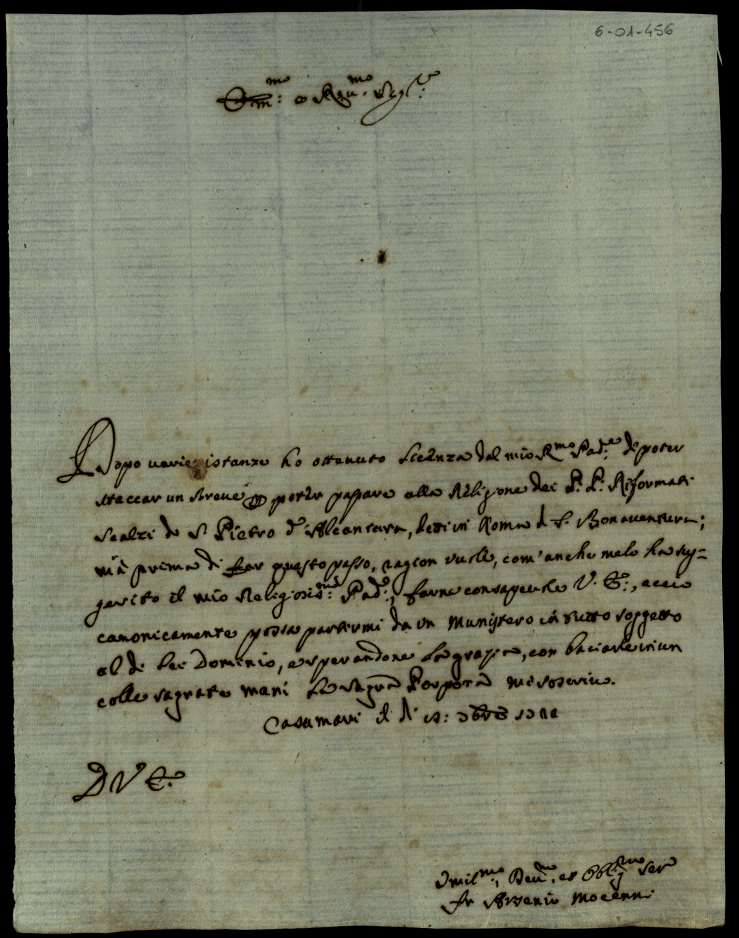 6-01-456
Em:mo e Rmo Sigre
Dopo varie istanze ho ottenuto licenza dal mio Rmo Pad:e di poter
staccar un Breve per poter passare alla Religione dei P. P. Riformati
Scalzi di S. Pietro d'Alcantara, detti in Roma di S. Bonaventura;
mà prima di far questo passo, ragion vuole, com'anche melo ha sug=
gerito il mio Religiosis:mo Pad:e, farne consapevole V. E:, acciò
canonicamente possa partirmi da un Munistero in tutto soggetto
al di Lei Dominio, e sperandone la grazia, con baciarle
colle sagrate mani la sagra Porpora mi soscrivo.
Casamari il dì
D V E.
Umil:mo, Dev:mo, et Obblig:mo Ser
fr Arsenio Mocenni